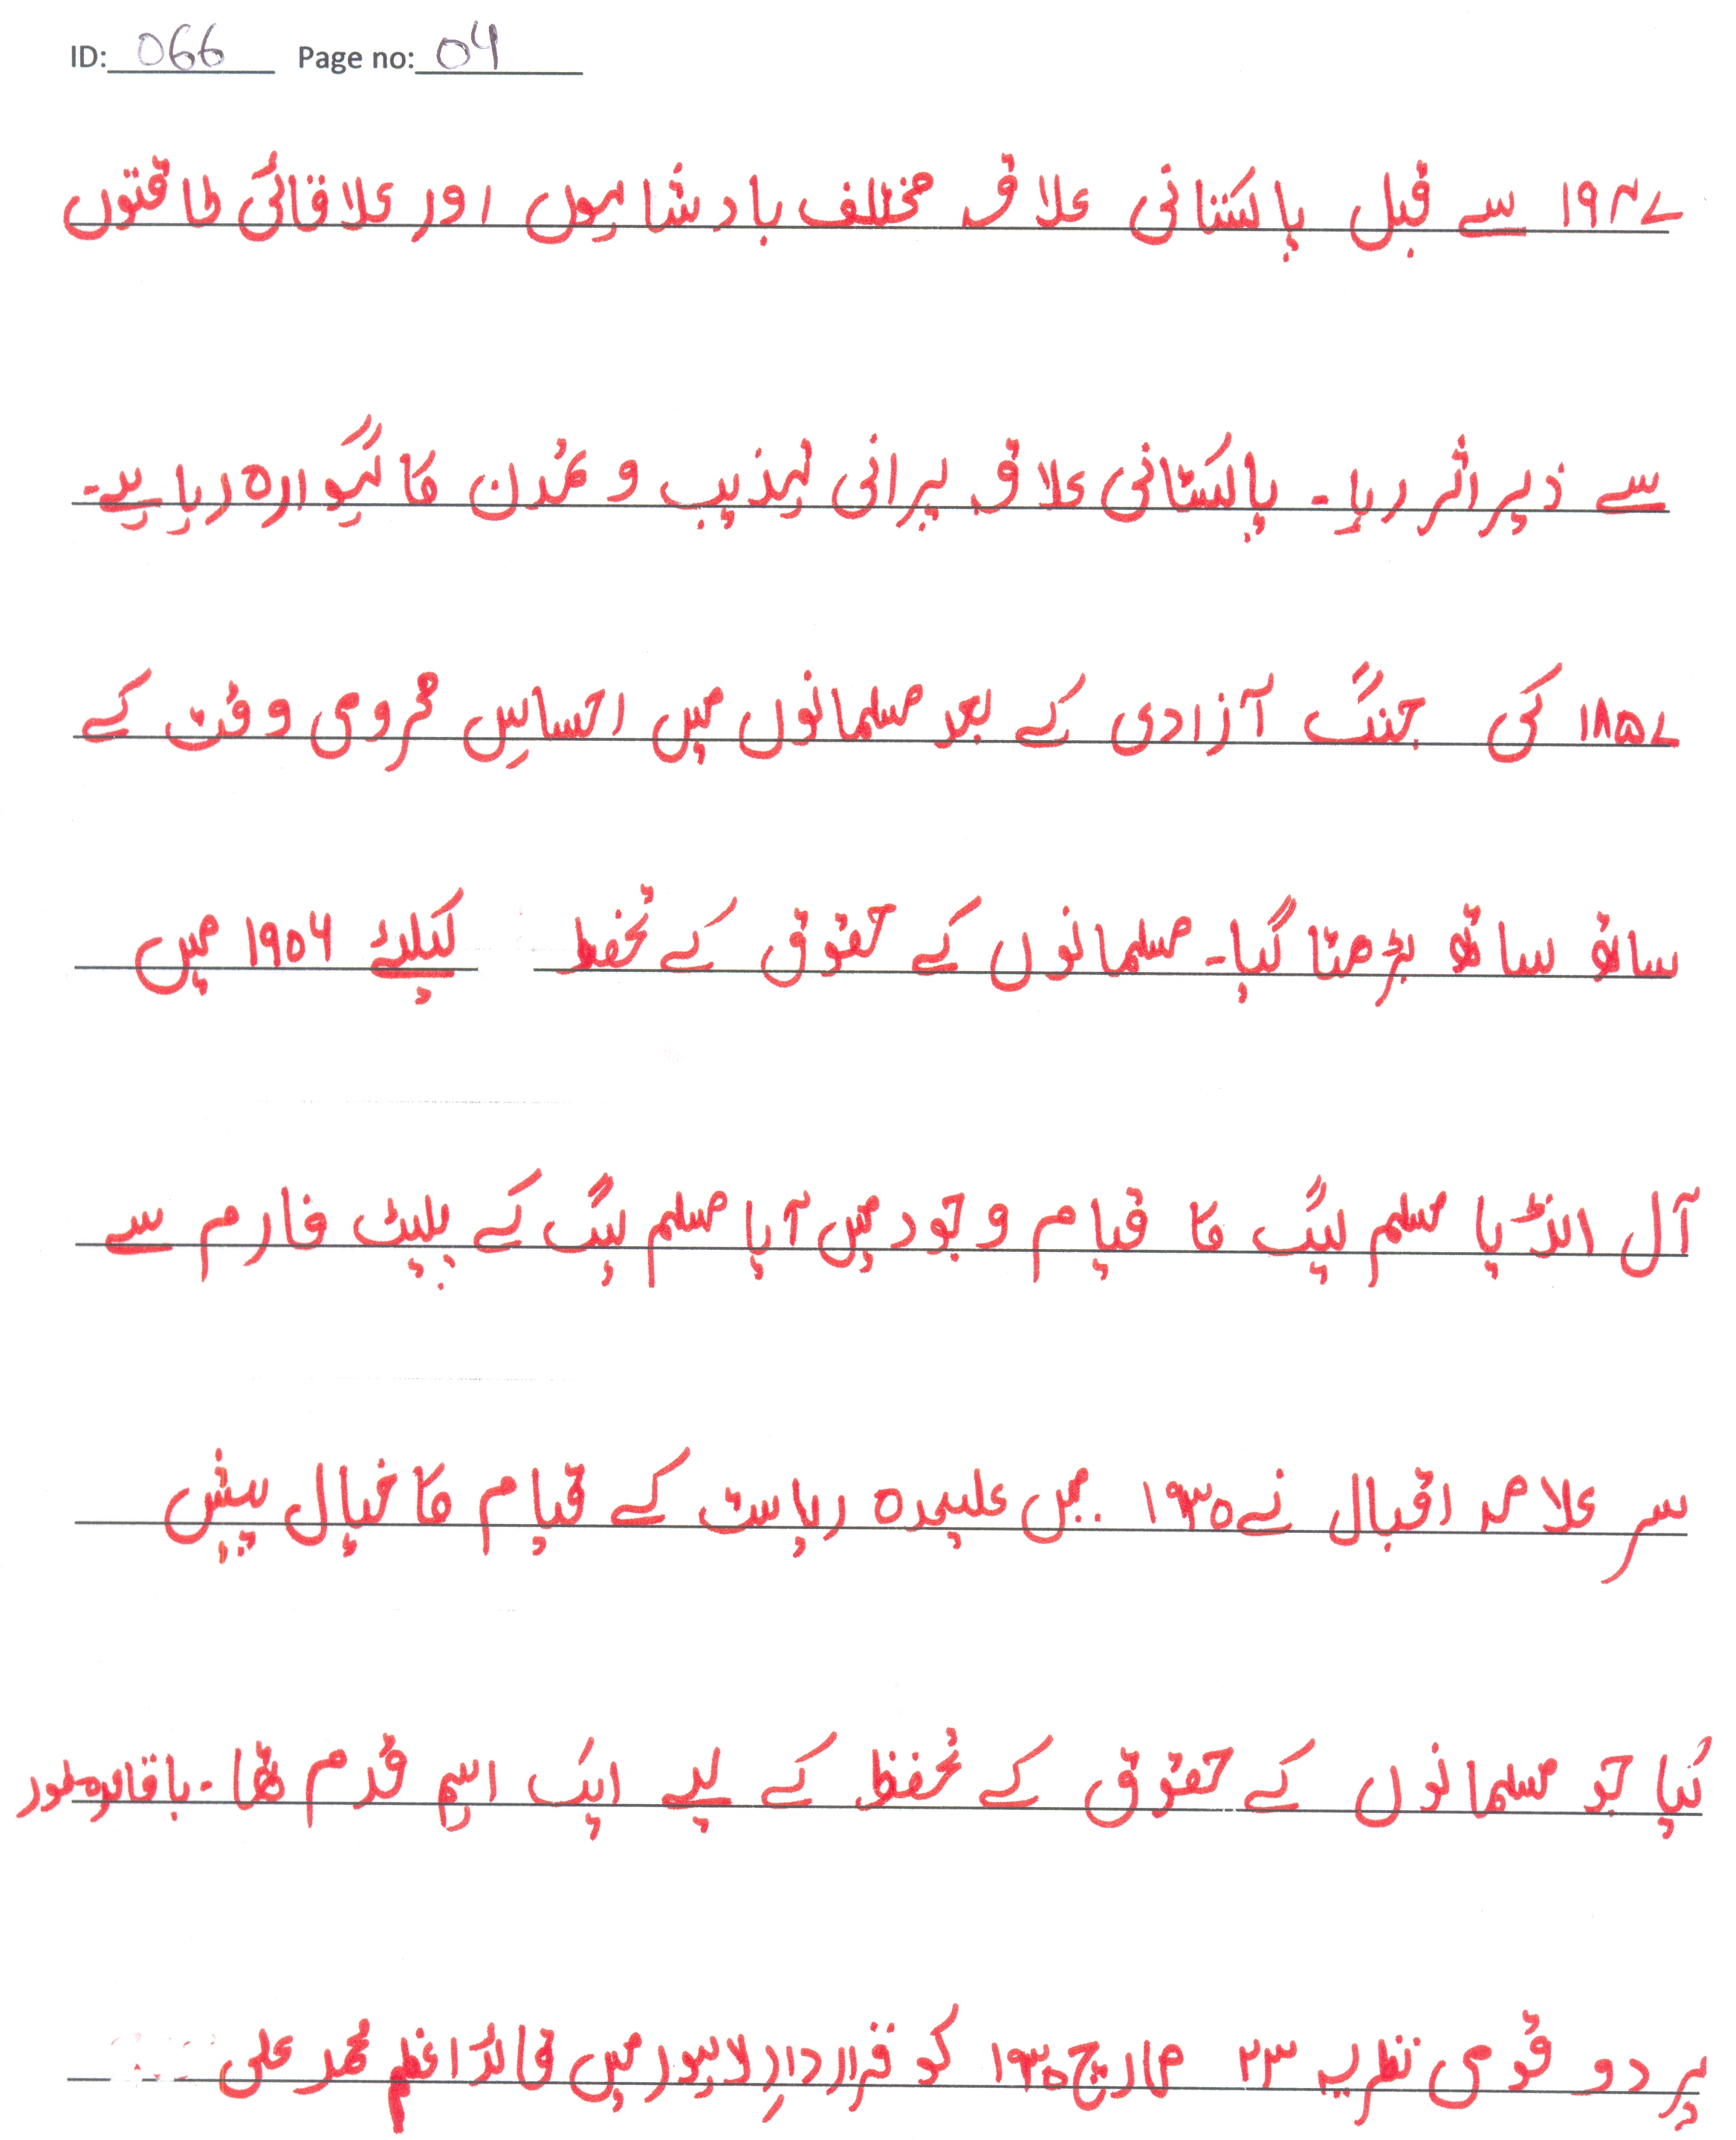 ID: 066 Page no: 04
۱۹۴۷ سے قبل پاکستانی علاقے مختلف بادشاہوں اور علاقائی طاقتوں
سے زیر اثر رہا۔ پاکستانی علاقے پرانی تہذیب و تمدن کا گہوارہ رہا ہے۔
۱۸۵۷ کی جنگ آزادی کے بعد مسلمانوں میں احساسِ محرومی وقت کے
ساتھ ساتھ بڑھتا گیا۔ مسلمانوں کے حقوق کے تحفظ کیلئے ۱۹۰۶ میں
آل انڈیا مسلم لیگ کا قیام وجود میں آیا مسلم لیگ کے پلیٹ فارم سے
سر علامہ اقبال نے ۱۹۳۰ میں علیحدہ ریاست کے قیام کا خیال پیش
کیا جو مسلمانوں کے حقوق کے تحفظ کے لیے ایک اہم قدم تھا۔ باقاعدہ طور
پر دو قومی نظریہ ۲۳ مارچ ۱۹۳۰ کو قراردادِ لاہور میں قائد اعظم محمد علی